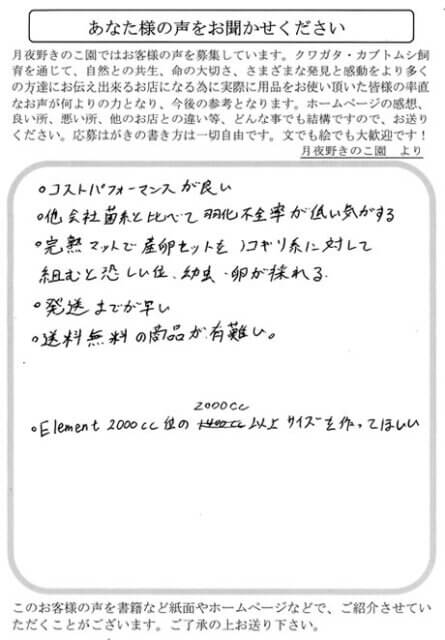 あなた様の声をお聞かせください
月夜野きのこ園ではお客様の声を募集しています。クワガタ・カブトムシ飼
育を通じて、自然との共生、命の大切さ、さまざまな発見と感動をより多く
の方達にお伝え出来るお店になる為に実際に用品をお使い頂いた皆様の率直
なお声が何よりの力となり、今後の参考となります。ホームページの感想、
良い所、悪い所、他のお店との違い等、どんな事でも結構ですので、お送り
ください。応募はがきの書き方は一切自由です。文でも絵でも大歓迎です！
月夜野きのこ園　より
○コストパフォーマンスが良い
○他会社菌糸と比べて羽化不全率が低い気がする
○完熟マットで産卵セットをノコギリ系に対して
組むと恐しい位、幼虫・卵が採れる.
○発送までが早い
○送料無料の商品が有難い。
2000cc
○Element 2000cc位の 1400cc 以上サイズを作ってほしい
このお客様の声を書籍など紙面やホームページなどで、ご紹介させてい
ただくことがございます。ご了承の上お送り下さい。